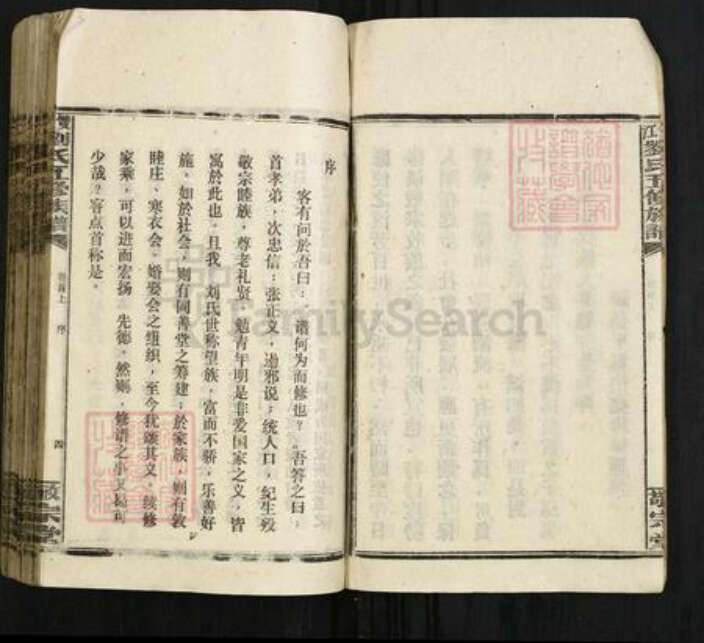 序
客有问於吾曰：谱何为而修也？吾答之曰：
首孝弟，次忠信；张正义，遏邪说；统人口，纪生殁
敬宗睦族，尊老礼贤，勉青年明是非爱国家之义，皆
寓於此也。且我 刘氏世称望族，富而不骄，乐善好
施，如於社会，则有同善堂之筹建；於家族，则有敦
睦庄、寒衣会、婚娶会之组织，至今犹颂其义，续修
家乘，可以进而宏扬 先德，然则，修谱之事又曷可
少哉？客点首称是。
刘氏五修族谱
卷首上 序
四
敬宗堂
江 刘氏五修族谱
敬宗堂
FamilySearch